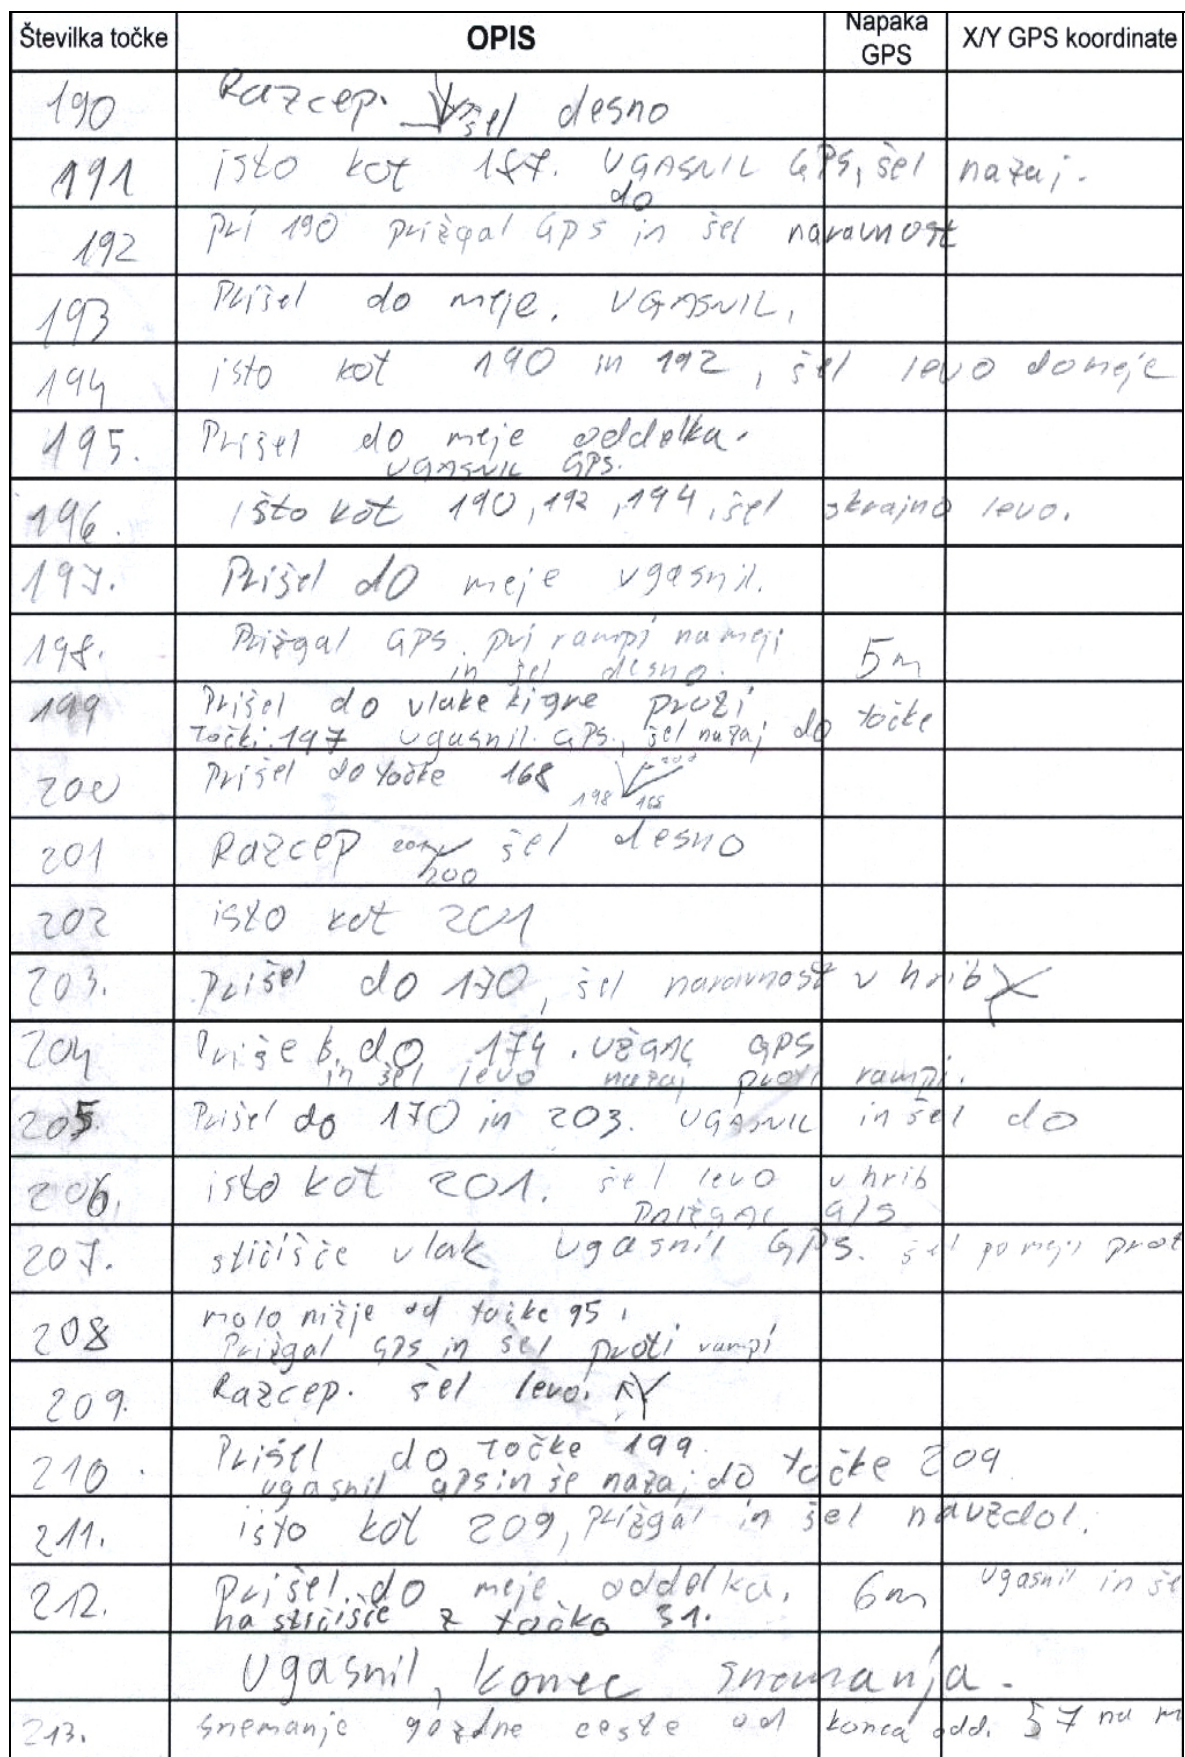 Številka točke OPIS Napaka GPS X/Y GPS koordinate
190 Razcep. šel desno
191 isto kot 187. UGASNIL GPS, šel nazaj.
do
192 pri 190 prižgal GPS in šel naravnost
193 Prišel do meje. UGASNIL,
194 isto kot 190 in 192, šel levo do meje
195. Prišel do meje oddelka.
UGASNIL GPS.
196. išto kot 190, 192, 194, šel skrajno levo.
197. Prišel do meje vgasnil.
198. Prižgal GPS. pri rampi na meji
in šel desno. 5m
199 Prišel do vlake ki gre proti
točki 197 ugasnil GPS, šel nazaj do točke
200 Prišel do točke 168 198 168 200
201 Razcep 200 šel desno
202 isto kot 201
203. prišel do 170, šel naravnost v hrib
204 Prišel do 174. UŽGAL GPS
in šel levo nazaj proti rampi.
205 Prišel do 170 in 203. UGASNIL in šel do
206. isto kot 201. šel levo v hrib
PRIŽGAL GPS
207. stičišče vlak Ugasnil GPS. šel po meji prot
208 malo nižje od točke 95,
Prižgal GPS in šel proti rampi
209. Razcep. šel levo.
210. Prišel do točke 199.
ugasnil GPS in še nazaj do točke 209
211. isto kot 209, prižgal in šel navzdol.
212. Prišel do meje oddelka. 6m Ugasnil in še
na stičišče z točko 31.
Ugasnil, konec snemanja.
213. snemanje gozdne ceste od konca odd. 57 na m